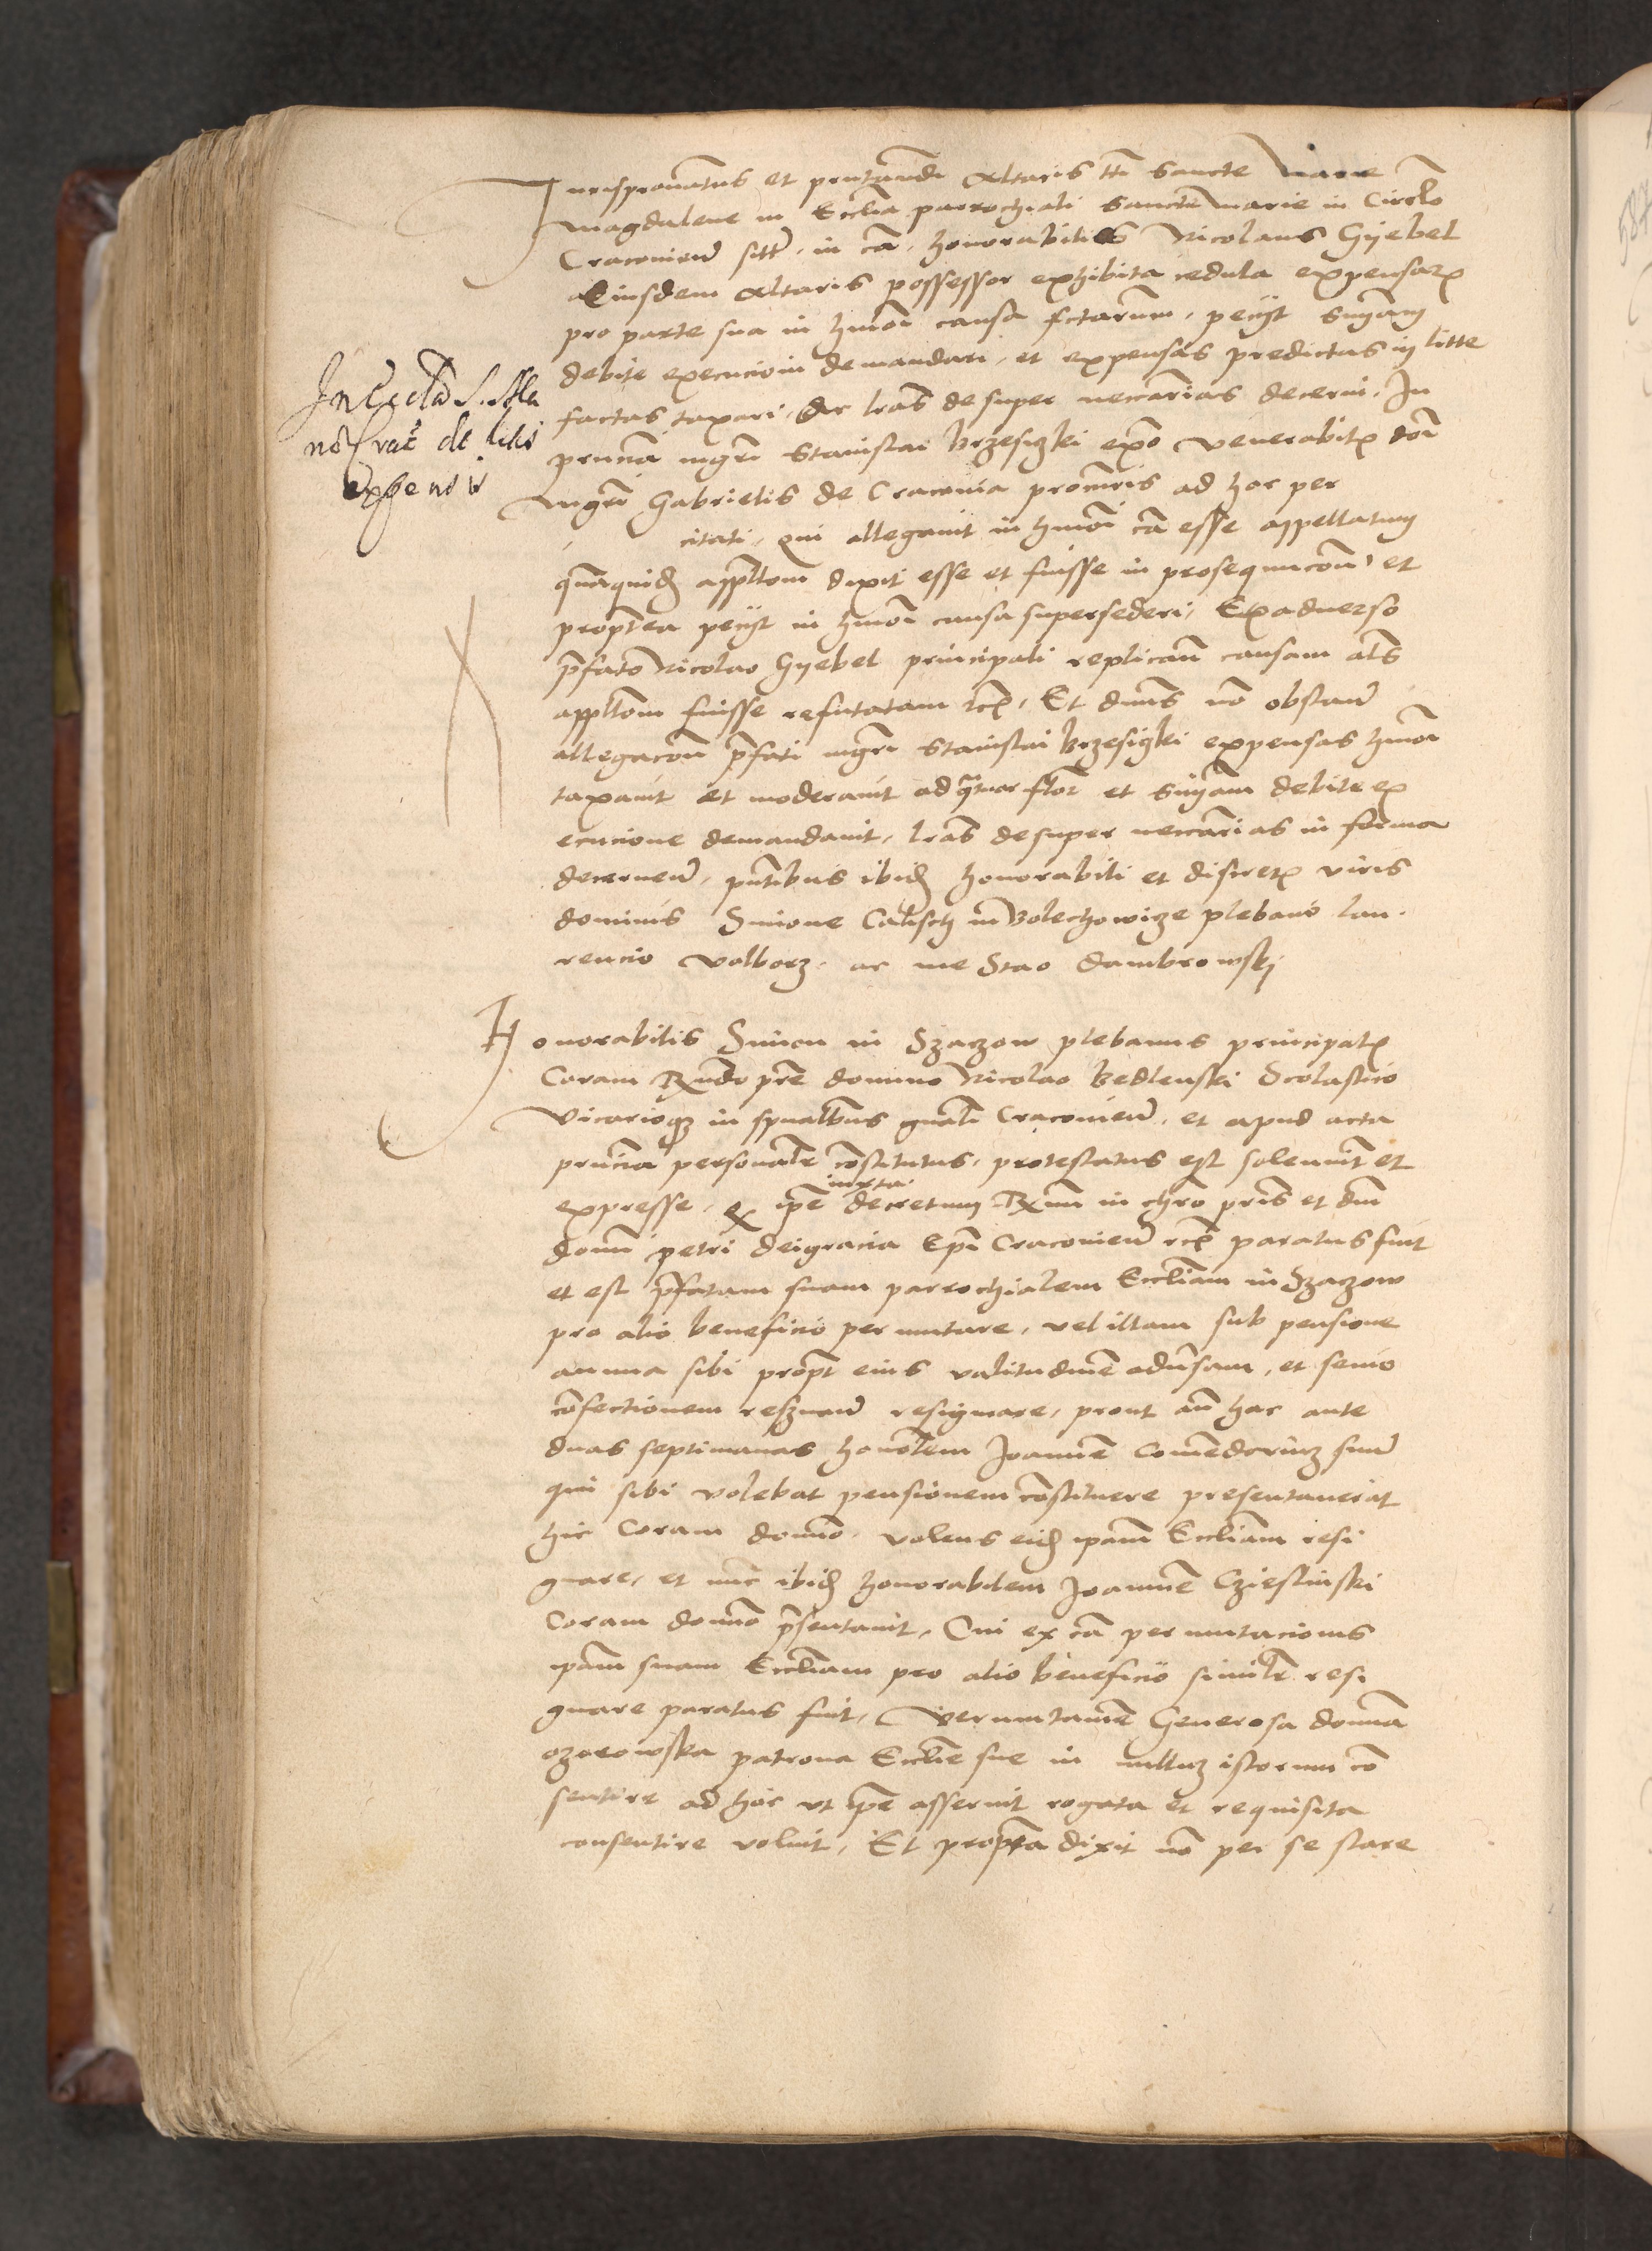 Jurispronatus et pntandi Altaris tti Sancte Marie
Magdalene in Ecclia parrochiali Sancte Marie in Circlo
Cracovien sitt, in ca, honorabilis Nicolaus Gyebel
Eiusdem Altaris possessor exhibita cedula expensarum
pro parte sua in hmoi causa fctarum, peciit sniam
debite execucioni demandari, et expensas predictas in litte
factas taxari, ac lras desuper neccarias decerni, In
pruncia mgri Stanislai brzesiczki expo Venerabilis doi
mgri Gabrielis de Cracovia procuris ad hoc per
citati, qui allegavit in hmoi ca esse appellatum
quaquid appltom dixit esse et fuisse in prosequucone, et
proptea peciit in hmoi causa supersederi, Ex adverso
pfato Nicolao Gyebel principali replican causam als
appltom fuisse refutatam etc, Et dnus no obstan
allegacone pfati mgri Stanislai brzesiczki expensas hmoi
taxavit et moderavit ad quatuor flor et sniam debite ex
ecucione demandavit, lras desuper neccarias in forma
decernen, pntibus ibid honorabili et discretis viris
dominis Simone Calisch in Bolechowicze plebano lau
rencio Volborz, ac me Stao dambrowski
In Eccla S. Ma
expensis
Honorabilis Simon in Szaczow plebanus principalis
Coram Rndo pre domino Nicolao bedlenski Scolastico
Vicarioque in spualibus gnali Cracovien, et apud acta
pruncia personalr constitutus, protestatus est solennit et
expresse, ex ipe iuxta decretum Rmi in chro pris et dni
domi petri dei gracia Epi Cracovien etc paratus fuit
et est pfatam suam parrochialem Eccliam in Szaczow
pro alio beneficio permutare, vel illam sub pensione
annua sibi propt eius valitudine adversam, et senio
confectionem reservan resignare, prout an hac ante
duas septimanas honolem Joanne Comedoricz sum
qui sibi volebat pensionem constituere presentaverat
hic Coram domino, volens eid ipam Eccliam resi
gnare, et nunc ibid honorabilem Joanne Cziesluski
Coram domino psentavit, Cui ex ca permutacionis
ipam suam Eccliam pro alio beneficio similr resi
gnare paratus fuit, Verumtame Generosa domina
ozarowska patrona Ecclie sue in nulluz istorum con
sentire ad hoc ut ipe asseruit rogata et requisita
consentire voluit, Et proptea dixit no per se stare